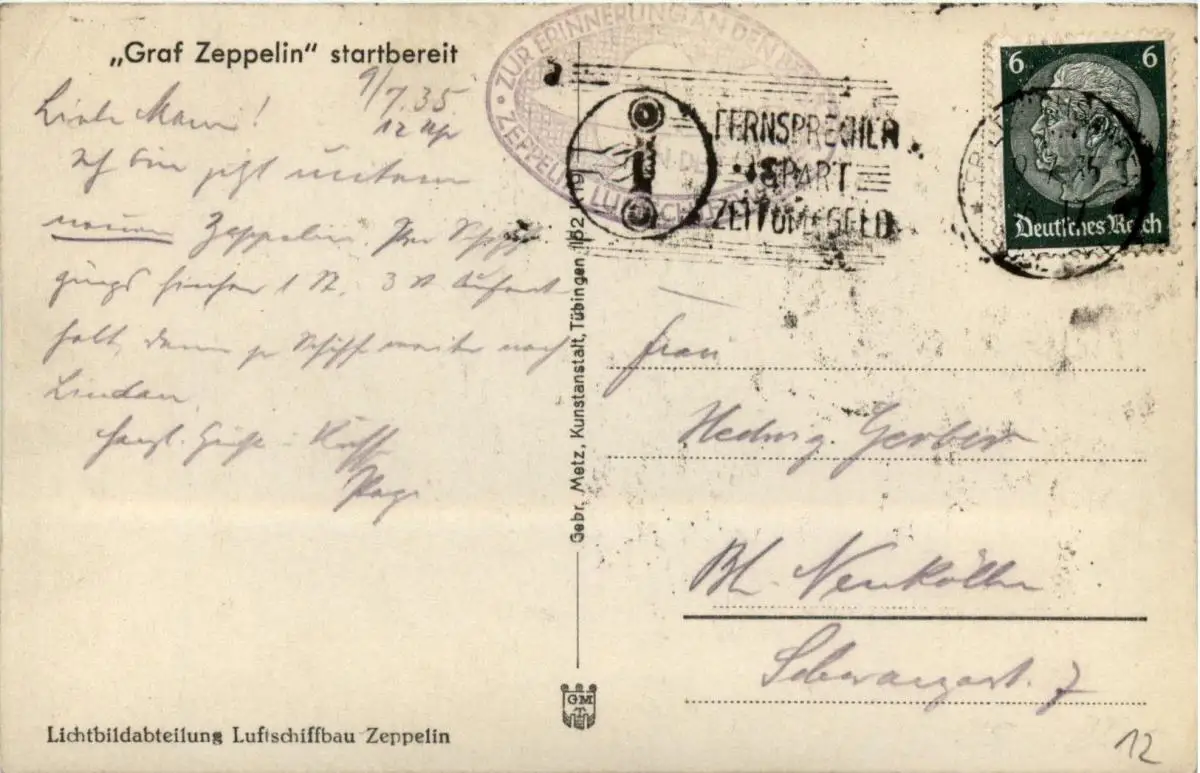 „Graf Zeppelin“ startbereit
9/7.35
12 Uhr
Liebe Mami!
Ich bin jetzt unterm
neuen Zeppelin. Per Schiff
gings hierher 1 St. 3 St Aufent
halt, dann p. Schiff weiter nach
Lindau
herzl. Grüße
ZUR ERINNERUNG AN DEN
ZEPPELIN LUFTSCHIFF
FERNSPRECHER
SPART
ZEIT UND GELD
6 6
Deutsches Reich
Gebr. Metz, Kunstanstalt, Tübingen 1152 19
Frau
Hedwig Gerber
Bl. Neukölln
Schwarzastr. 7
GM
T
Lichtbildabteilung Luftschiffbau Zeppelin
12